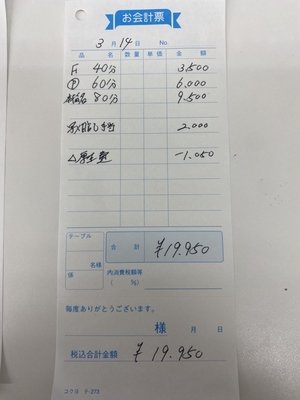 お会計票
3月14日 No.
品名 数量 単価 金額
F 40分 3,500
60分 6,000
本指名 80分 9,500
2,000
△厚生費 -1,050
テーブル
名様
係
合計 ¥19,950
内消費税額等
( %)
毎度ありがとうございます。
様 月 日
税込合計金額 ¥19,950
コクヨ テ-273